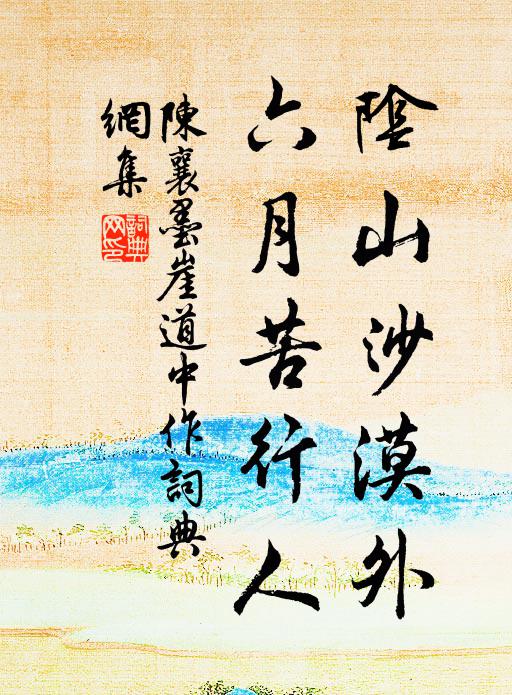 陰山沙漠外
六月苦行人
陳襄墨崖道中作詞典
網集
詞典網印